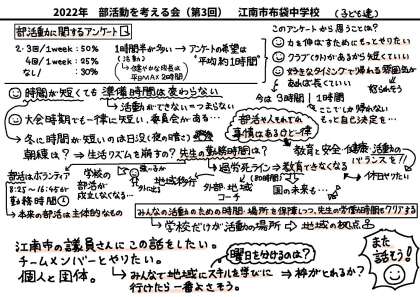 2022年 部活動を考える会(第3回) 江南市布袋中学校 (子ども達)
部活動に関するアンケート
2・3回/1week : 50%
4回/1week : 25%
なし/ : 30%
1時間半が多い→アンケートの希望は
(活動)
"平均約1時間"
平日MAX2時間
このアンケートから思うことは?
力を伸ばすためにもっとやりたい
クラブ(外)があるから短くていい
好きなタイミングで帰れる雰囲気が
あれば長くていい
怒られそう
時間が短くても準備時間は変わらない
→活動ができない=つまらない
今は3時間/1時間
ここでしか帰れない
もっと自己決定を…
大会時期でも一律に短い、委員会がある…
→冬に時間が短いのは日没(夜の暗さ)
部活をそれぞれの
事情はあるけど一律
朝練は?→生活リズムを崩すの? 先生の勤務時間は?
教育と安全・健康・活動の
バランスを!!
部活はボランティア
学校の
部活が
成立しなくなる…
地域移行
外部・地域
コーチ
→過労死ライン→教育できなくなる
(80時間)
休日やりたい
国の未来も…
8:25~16:45が
勤務時間
→本来の部活は主体的なもの
みんなの活動のための時間・場所を保障しつつ、先生の労働時間もクリアする
→学校だけが活動の場所⇨地域の拠点
江南市の議員さんにこの話をしたい。
チームメンバーとやりたい。
個人と団体。
曜日を分けるのは?
→みんなで地域にスキルを学びに
行けたら一番よさそう。
⇒枠がとれるか?
また
話そう!